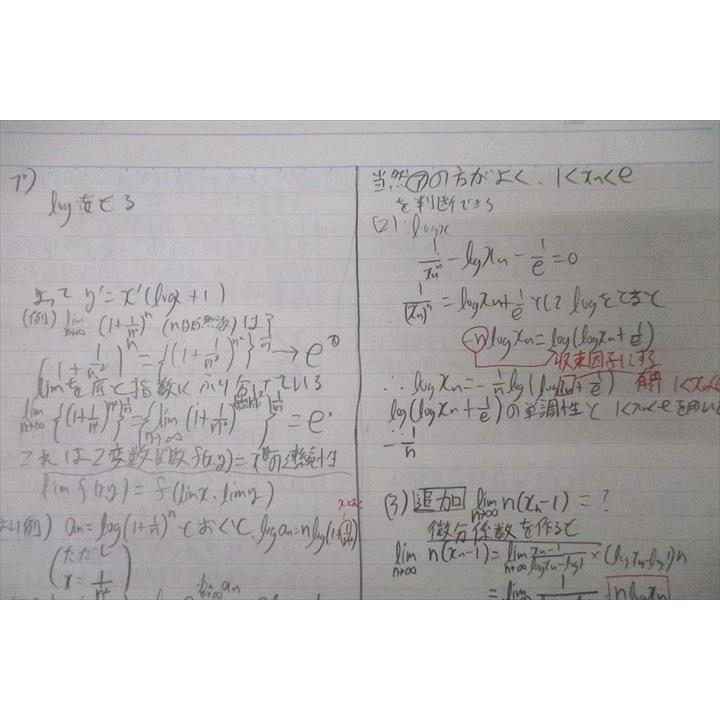 logをとる
よって y'=x^x(logx+1)
(例) lim n→∞ (1+1/n²)^n (nは自然数)は?
(1+1/n²)^n={(1+1/n²)^n²}^1/n → e^0
limを底と指数にふり分けている
lim n→∞ {(1+1/n²)^n²}^1/n={lim n→∞ (1+1/n²)^n²} =e^0
これは2変数関数f(x,y)=x^yの連続性
lim f(x,y)=f(limx,limy)
例) an=log(1+1/n)^n とおくと、logan=nlog(1+
(ただし
x=1/n²)
lim n→∞ an
当然㋐の方がよく、1<xn<e
を判断できる
(2) logx
1/xn^n-logxn-1/e=0
1/(xn)^n=logxn+1/e として logをとると
-nlogxn=log(logxn+1/e)
収束因子にする
∴ logxn=-1/n log(logxn+1/e) 有界 1<xn<e
log(logxn+1/e)の単調性と 1<xn<eを用い
-1/n
(3) 追加 lim n→∞ n(xn-1)=?
微分係数を作ると
lim n→∞ n(xn-1)=lim n→∞ xn-1/logxn-log1×(logxn-log1)n
=lim 1 nlogxn